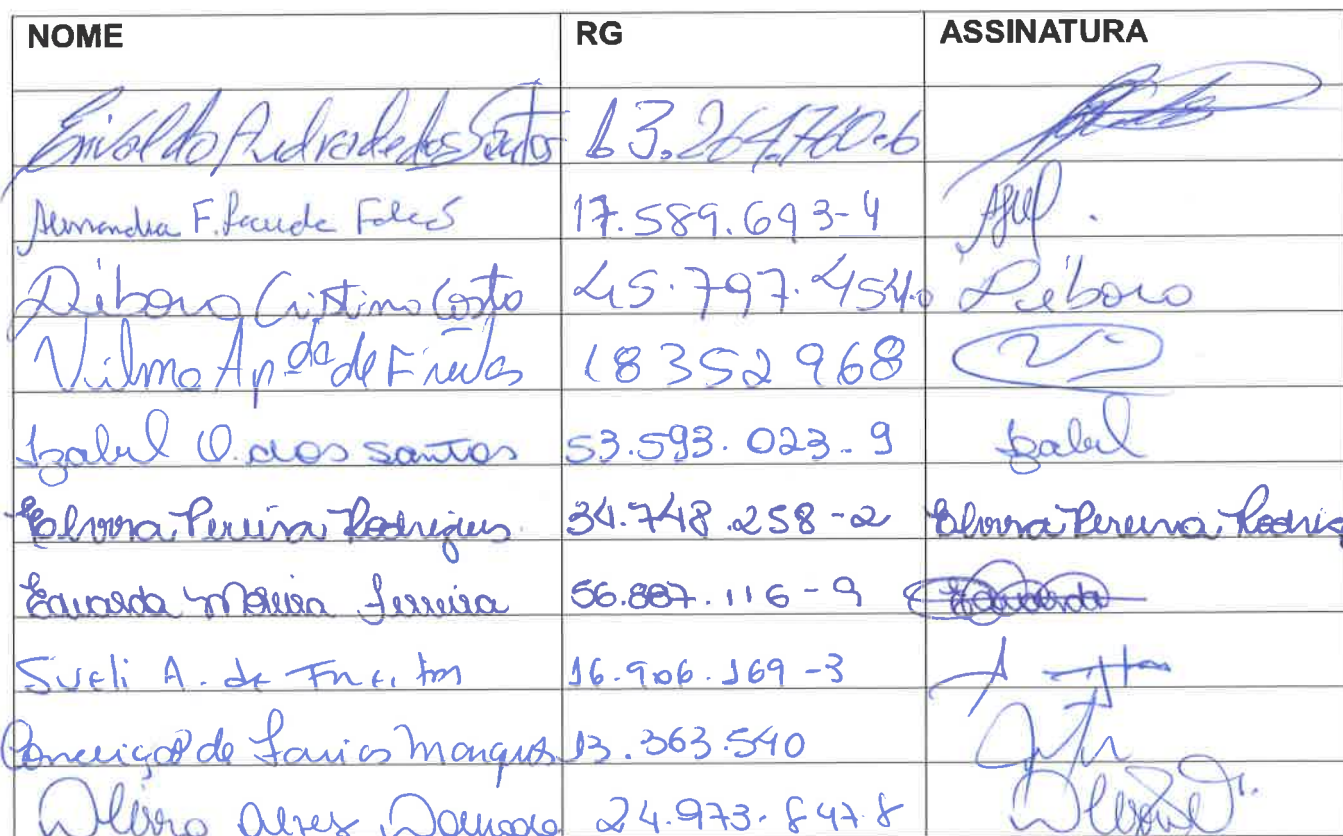 NOME RG ASSINATURA
Erivaldo Andrade dos Santos 13.264.760-6
F. 17.589.693-4
Débora Cristina Costa 45.797.454-0 Débora
Vilma Apda de Freitas 18352968
Izabel O. dos Santos 53.593.023-9 Izabel
Elvira Pereira Rodrigues 34.748.258-2 Elvira Pereira Rodrig
Eduarda Moreira Ferreira 56.887.116-9 Eduarda
Sueli A. de Freitas 16.906.169-3
Conceição de Farias Marques 13.363.540
Alves 24.973.847.8